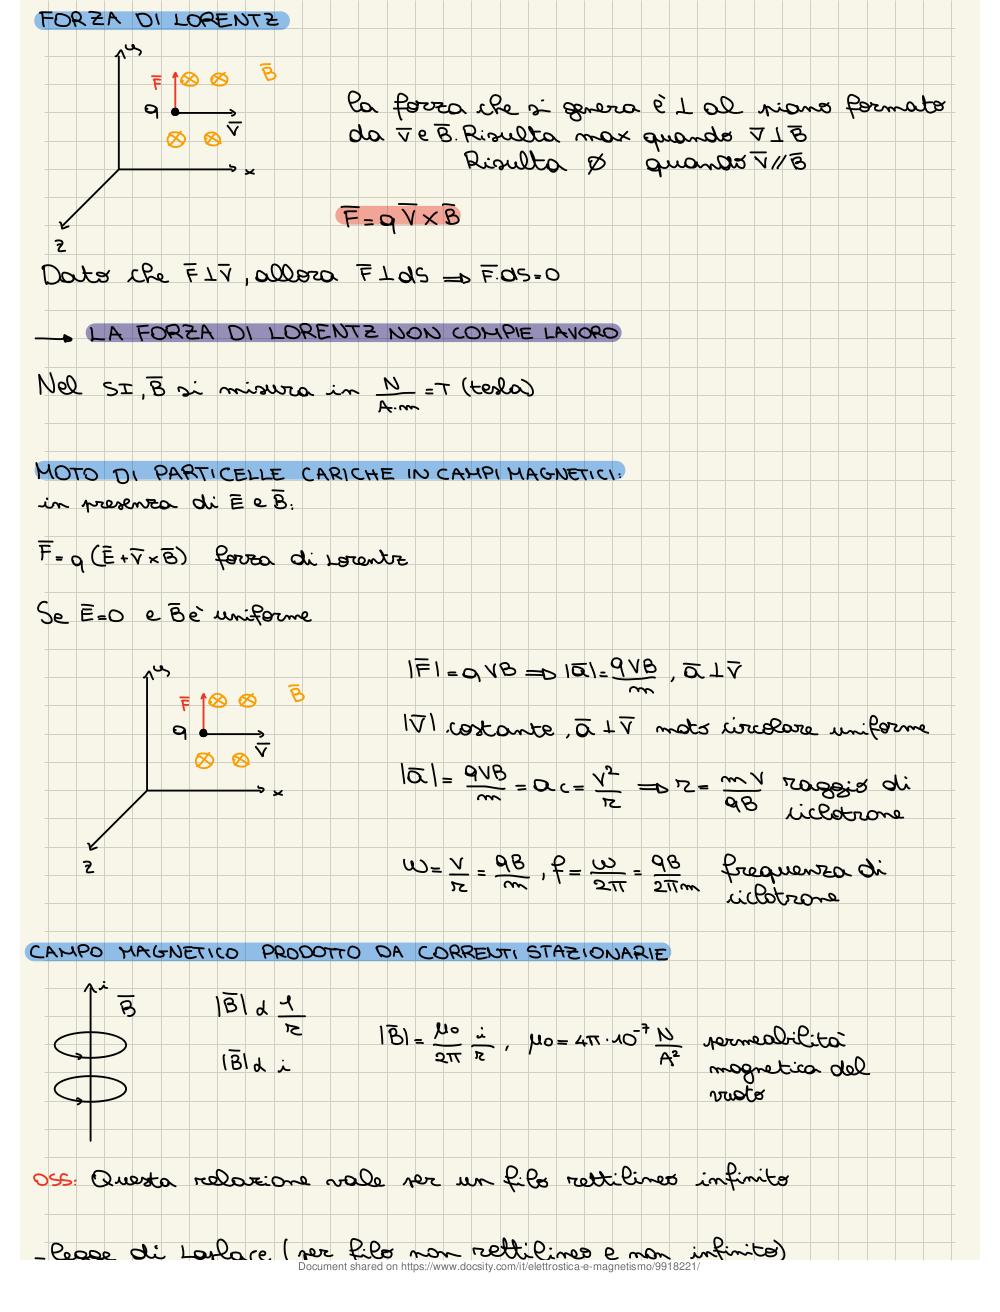 FORZA DI LORENTZ
y
F̅ B̅
q
V̅
x
z
la forza che si genera è ⊥ al piano formato
da V̅ e B̅. Risulta max quando V̅ ⊥ B̅
Risulta ∅ quando V̅ // B̅
F̅ = q V̅ × B̅
Dato che F̅ ⊥ V̅, allora F̅ ⊥ ds ⇒ F̅·ds = 0
→ LA FORZA DI LORENTZ NON COMPIE LAVORO
Nel SI, B̅ si misura in N/A·m = T (tesla)
MOTO DI PARTICELLE CARICHE IN CAMPI MAGNETICI:
in presenza di E̅ e B̅:
F̅ = q (E̅ + V̅ × B̅) forza di Lorentz
Se E̅ = 0 e B̅ è uniforme
y
F̅ B̅
q
V̅
x
z
|F̅| = qVB ⇒ |a̅| = qVB/m , a̅ ⊥ V̅
|V̅| costante, a̅ ⊥ V̅ moto circolare uniforme
|a̅| = qVB/m = ac = V²/r ⇒ r = mV/qB raggio di
ciclotrone
ω = V/r = qB/m , f = ω/2π = qB/2πm frequenza di
ciclotrone
CAMPO MAGNETICO PRODOTTO DA CORRENTI STAZIONARIE
i
B̅
|B̅| α 1/r
|B̅| α i
|B̅| = μ0/2π i/r , μ0 = 4π·10⁻⁷ N/A² permeabilità
magnetica del
vuoto
OSS: Questa relazione vale per un filo rettilineo infinito
- legge di Laplace (per filo non rettilineo e non infinito)
Document shared on https://www.docsity.com/it/elettrostica-e-magnetismo/9918221/